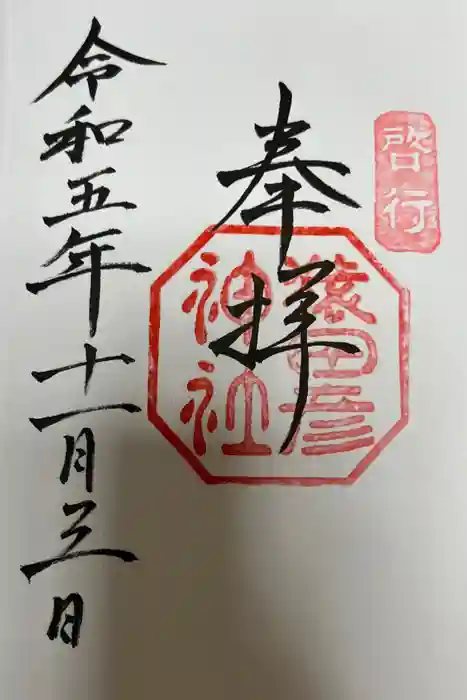 啓行
奉拝
猿田彦
神社
令和五年十一月三日